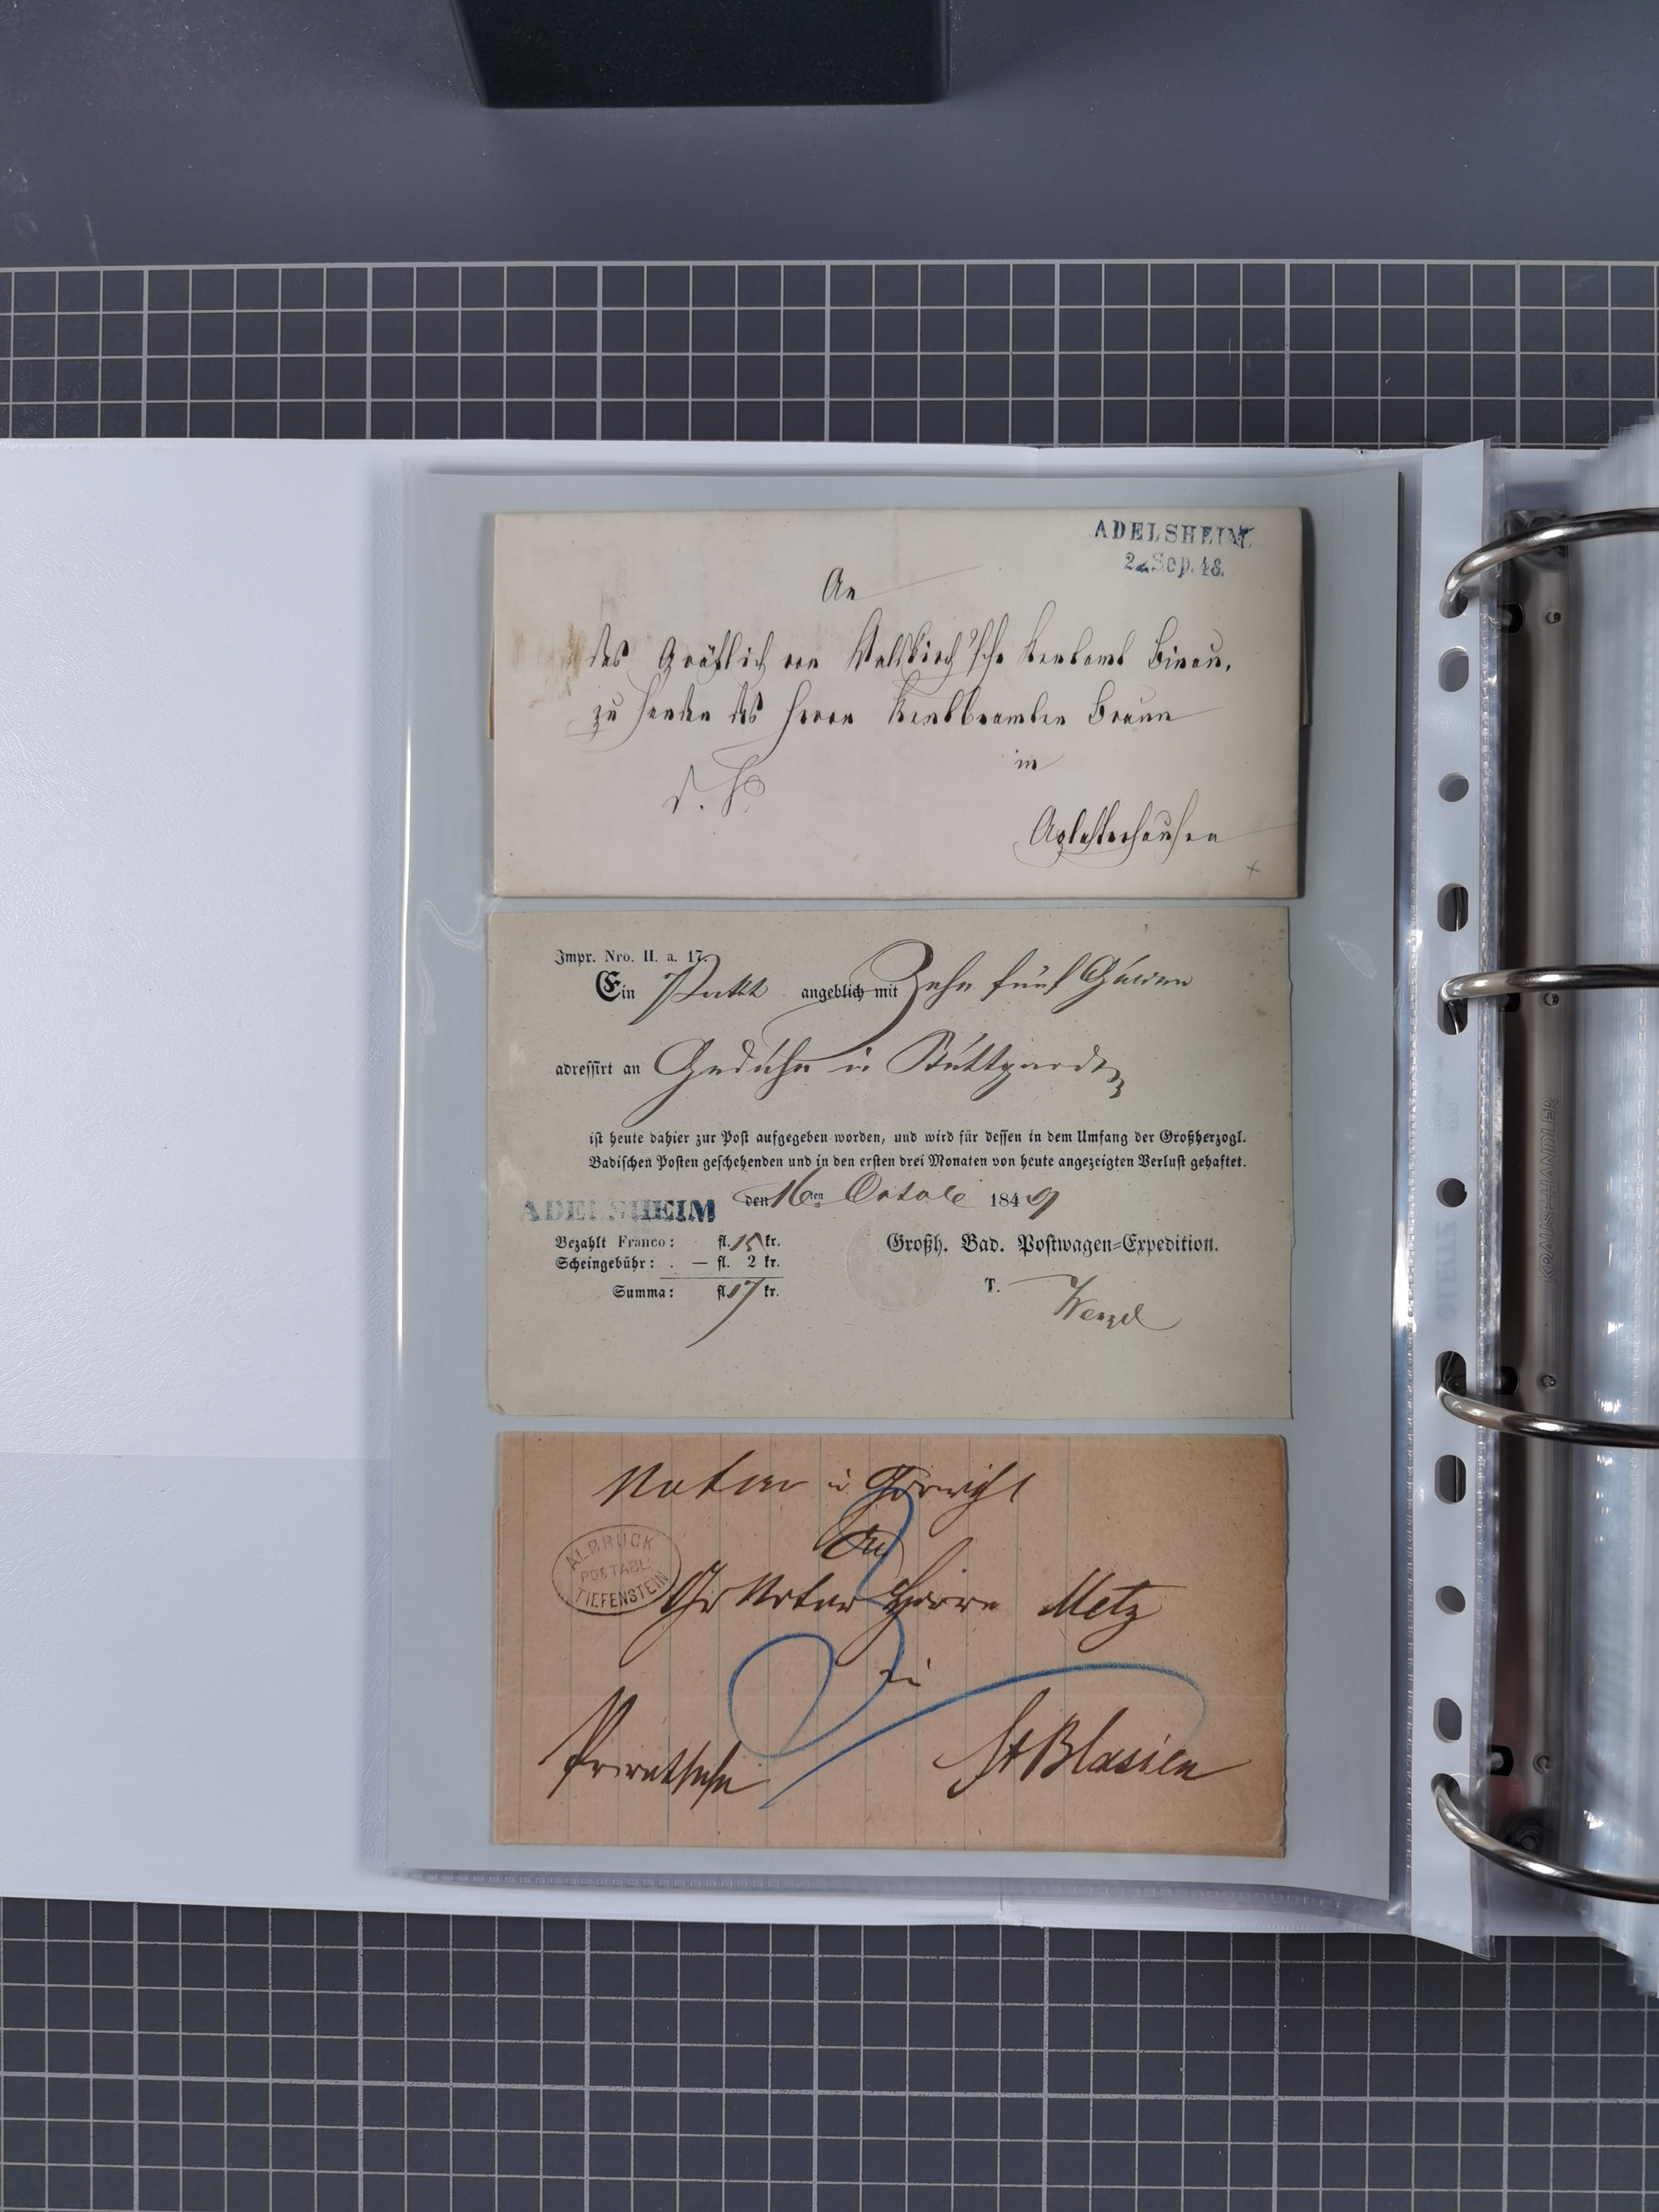 ADELSHEIM
2 Sep. 48.
An
das Gräflich von Waldkirch'sche Rentamt Binau,
zu Handen des Herrn Rentbeamten Braun
in
Aglasterhausen
Impr. Nro. II. a. 17.
Ein Pakt angeblich mit Zehn fünf Gulden
adressirt an in Stuttgardt
ist heute dahier zur Post aufgegeben worden, und wird für dessen in dem Umfang der Großherzogl.
Badischen Posten geschehenden und in den ersten drei Monaten von heute angezeigten Verlust gehaftet.
ADELSHEIM den 16ten 1849
Bezahlt Franco: fl. 15 kr.
Scheingebühr: . — fl. 2 kr.
Summa: fl. 17 kr.
Großh. Bad. Postwagen=Expedition.
T. Wenzel
Notar in Görwihl
An
ALBRUCK
POSTABL.
TIEFENSTEIN
Gr Notar Herrn Metz
in
Privatsache
St Blasien
KRAUSHHANDLER